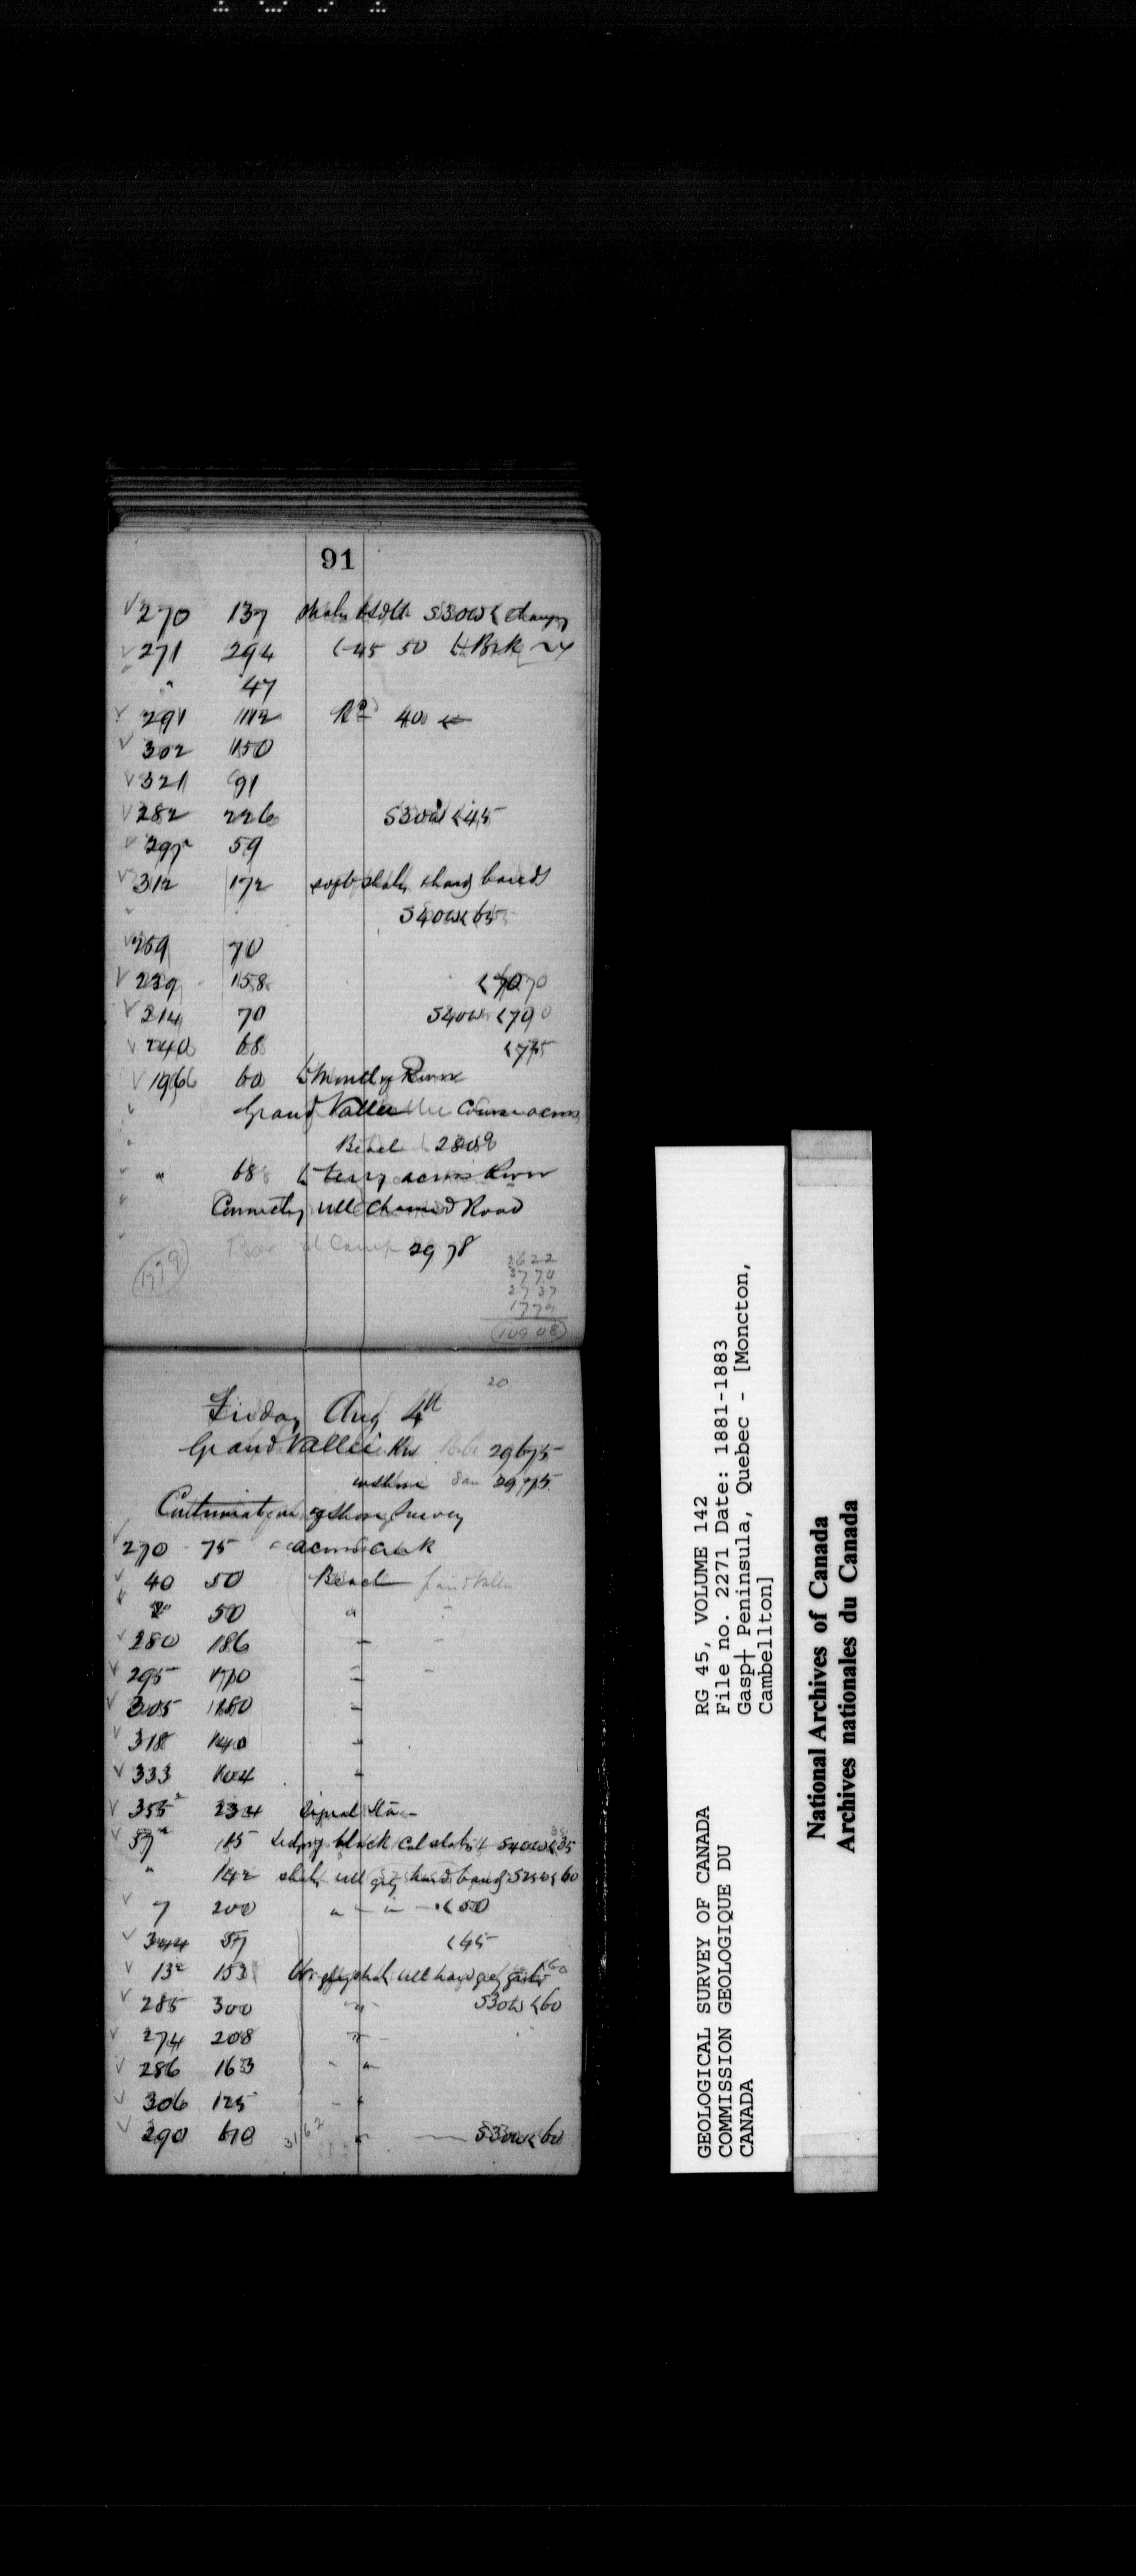 91
270 137 S30W < 
271 294 <45 50 Brk
" 47
291 112 Rd 40
302 150
321 91
282 226 S30W <45
297 59
312 172 soft shaly hard bands
S40W<65
259 70
239 158 <70
214 70 S40W <70
240 68 <75
196 60 Mouth of River
Grand Vallee Course across
Beach 280
" 68 to ferry across River
Connecting with chained Road
Camp 2978
1779
2622
3770
2737
1779
10908
20
Friday Aug 4th
Grand Vallee Riv 29675
2975
Continuation of Shore Survey
270 75 across creek
40 50 Beach Grand Vallee
2 50 "
280 186
295 170
305 180
318 140
333 104
355 234 Signal Sta
57 115 black S40W<35
" 142 shaly with grey hard bands S25W<60
7 200 " " <50
344 57 <45
13 153 with hard grey <60
285 300 " S30W <60
274 208 "
286 163 "
306 125 "
290 60 3162 " S30W<60
GEOLOGICAL SURVEY OF CANADA
COMMISSION GEOLOGIQUE DU
CANADA
RG 45, VOLUME 142
File no. 2271 Date: 1881-1883
Gasp† Peninsula, Quebec - [Moncton,
Cambellton]
National Archives of Canada
Archives nationales du Canada